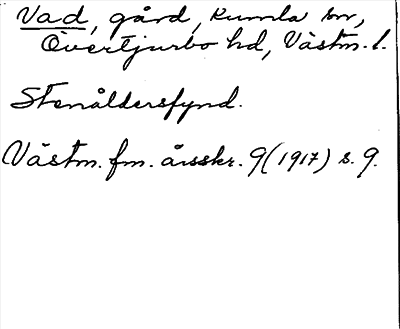 Vad, gård, Kumla sn,
Övertjurbo hd, Västm. l.
Stenåldersfynd.
Västm. fm. årsskr. 9 (1917) s. 9.